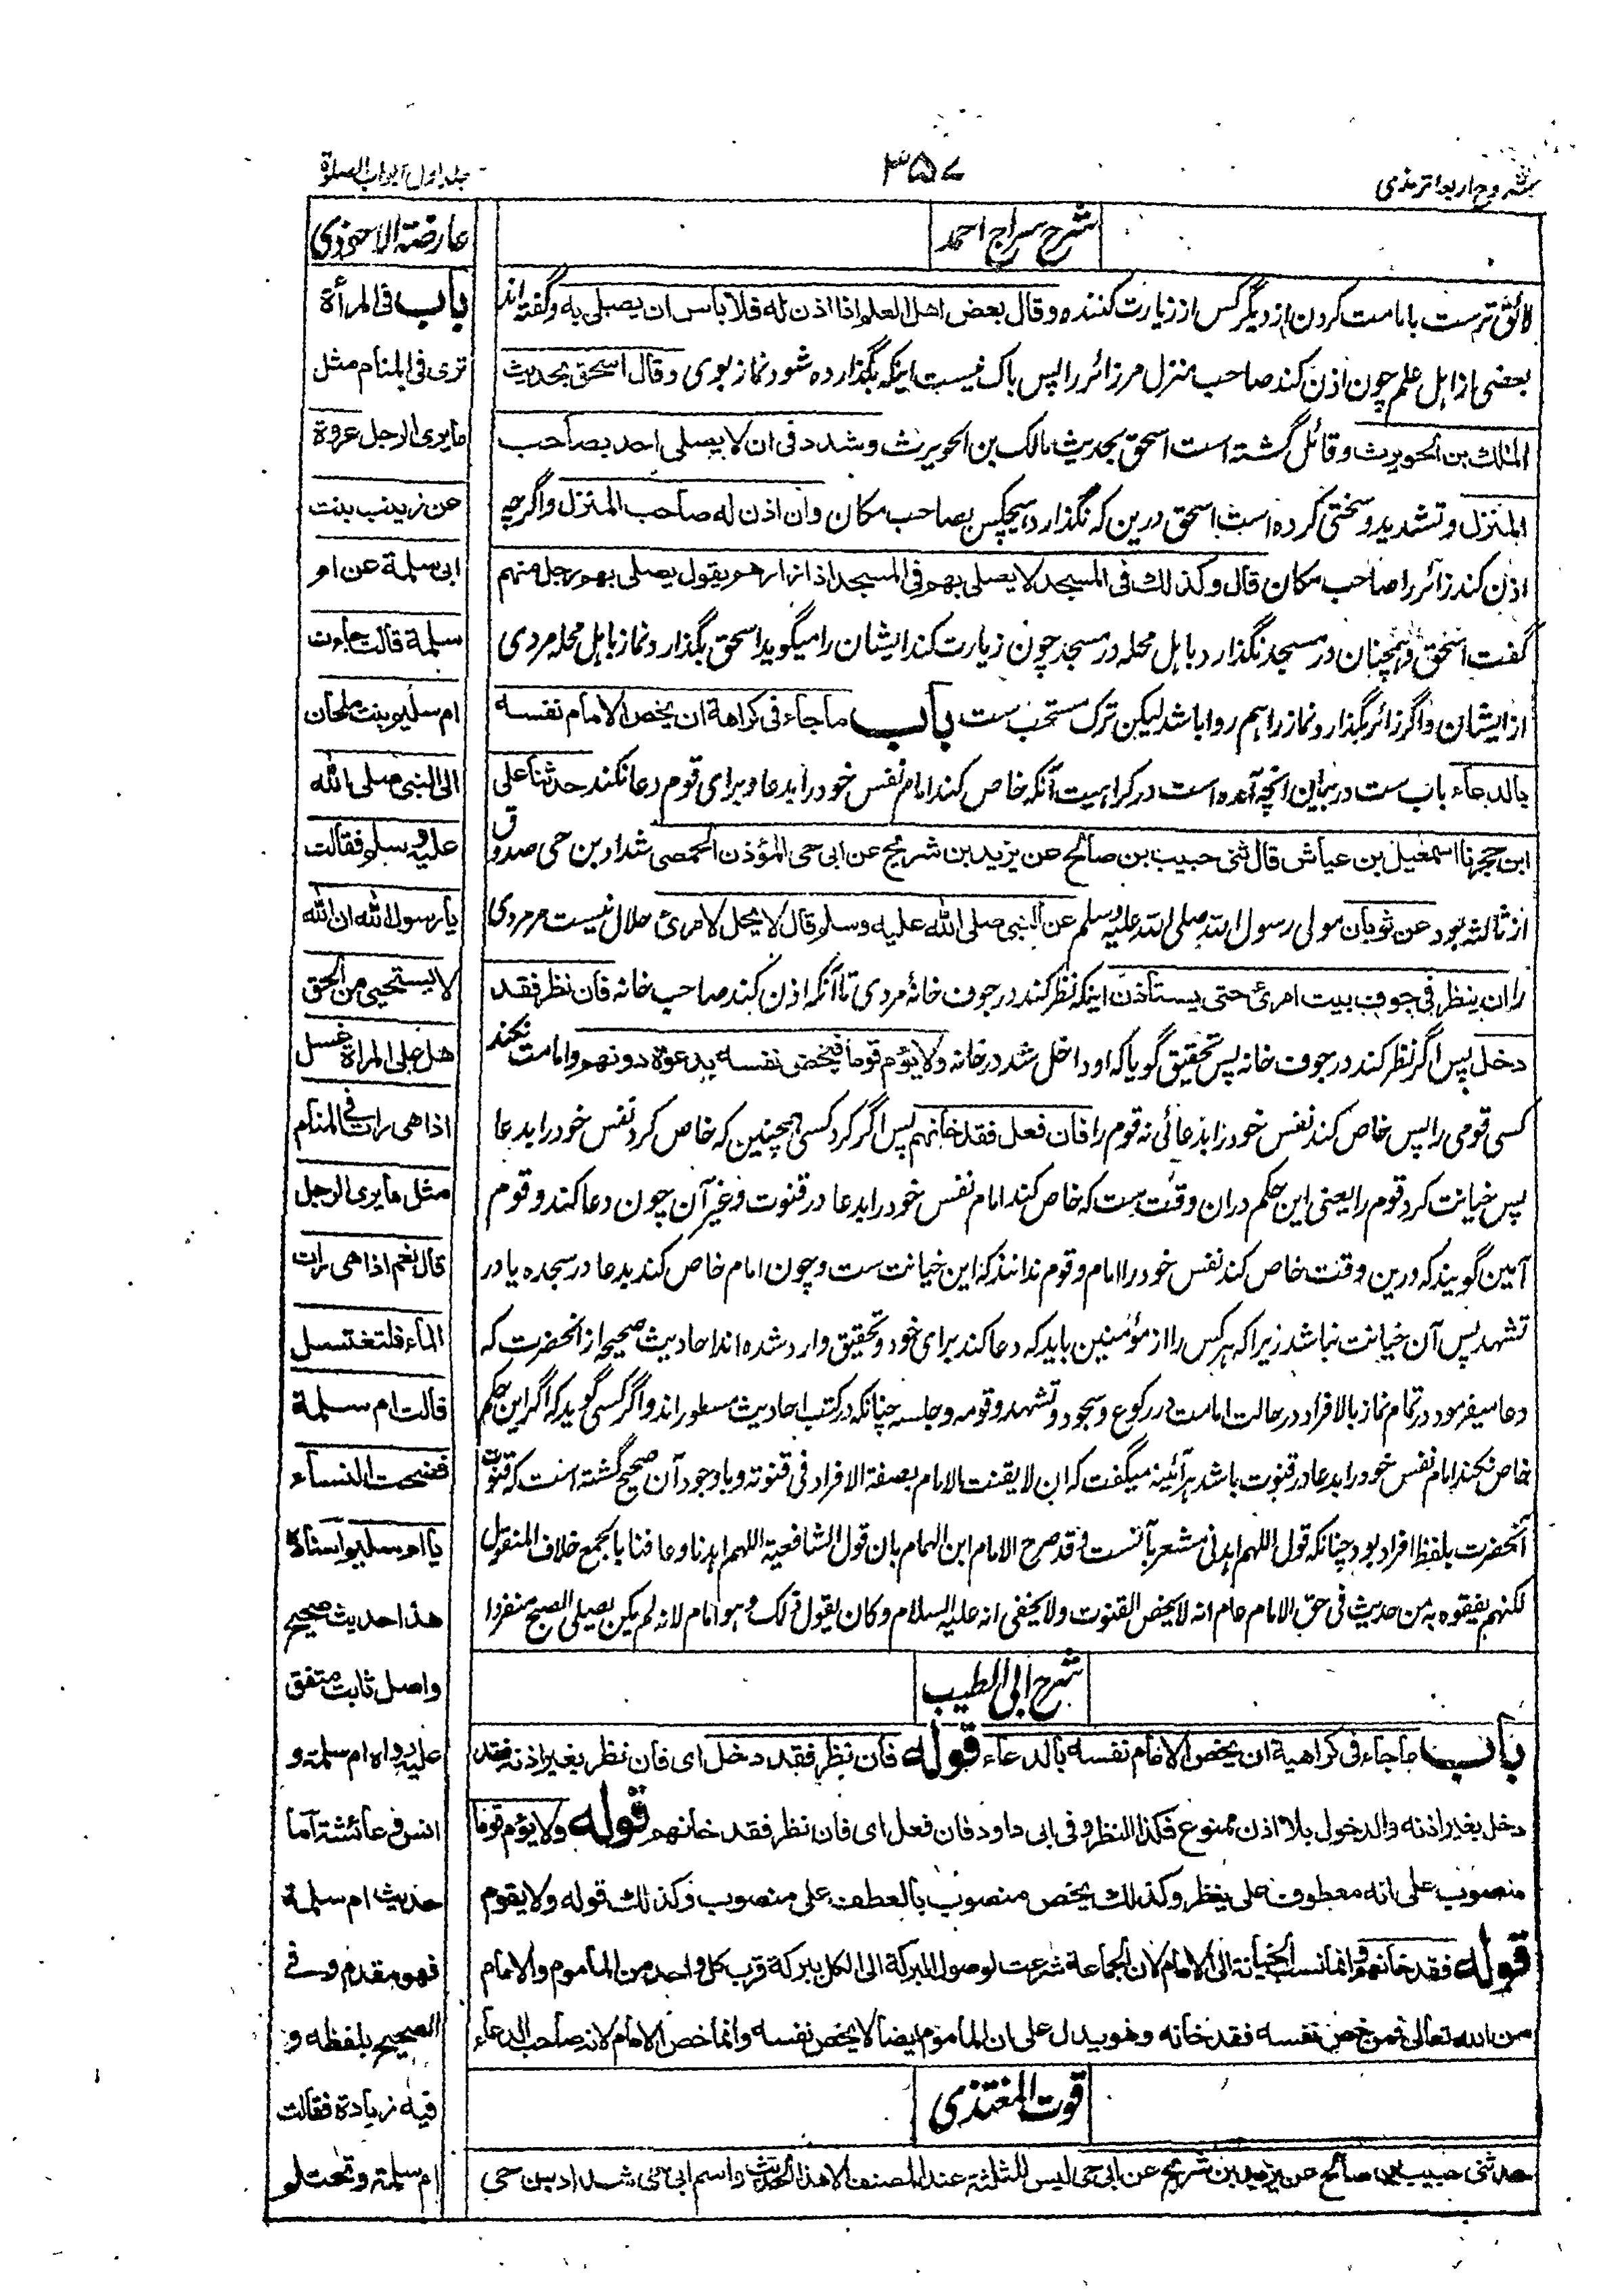 شروح اربعہ ترمذی
۳۵۷
جلد اول ابواب الصلوٰۃ
شرح سراج احمد
لائق ترست بامامت کردن از دیگر کس از زیارت کننده وقال بعض اهل العلم اذا اذن له فلا باس ان یصلی به وگفته اند
بعضی از اہل علم چون اذن کند صاحب منزل مرزائر را پس باک نیست اینکه بگذارده شود نماز بوی وقال اسحق بحدیث
المالک بن الحویرث وقائل گشته است اسحق بحدیث مالک بن الحویرث وشدد فی ان لا یصلی احد بصاحب
المنزل وتشدید وسختی کرده است اسحق درین که نگذارد هیچکس بصاحب مکان وان اذن له صاحب المنزل واگرچه
اذن کند زائر را صاحب مکان قال وکذلك فی المسجد لا یصلی بهم فی المسجد اذا زارهم یقول یصلی بهم رجل منهم
گفت اسحق وہمچنان در مسجد نگذارد باہل محله در مسجد چون زیارت کند ایشان را میگوید اسحق بگذارد نماز باہل محله مردی
از ایشان واگر زائر بگذارد نماز را ہم روا باشد لیکن ترک مستحب ست باب ماجاء فی کراهة ان یخص الامام نفسه
بالدعاء باب ست در بیان انچه آمده است در کراہیت آنکه خاص کند امام نفس خود را بدعا وبرای قوم دعا نکند حدثنا علی
ابن حجرنا اسمعیل بن عیاش قال ثنی حبیب بن صالح عن یزید بن شریح عن ابی حی المؤذن الحمصی شداد بن حی صدوق
از ثالثه بود عن ثوبان مولی رسول الله صلی الله علیه وسلم عن النبی صلی الله علیه وسلم قال لا یحل لامرئ حلال نیست مرمردی
را ان ینظر فی جوف بیت امرئ حتی یستاذن اینکه نظر کند در جوف خانۀ مردی تا آنکه اذن کند صاحب خانه فان نظر فقد
دخل پس اگر نظر کند در جوف خانه پس تحقیق گویا که او داخل شد در خانه ولا یؤم قوما فیخص نفسه بدعوة دونهم وامامت نکند
کسی قومی را پس خاص کند نفس خود را بدعائی نه قوم را فان فعل فقد خانهم پس اگر کرد کسی ہمچنین که خاص کرد نفس خود را بدعا
پس خیانت کرد قوم را یعنی این حکم دران وقت ست که خاص کند امام نفس خود را بدعا در قنوت وغیر آن چون دعا کند وقوم
آمین گویند که درین وقت خاص کند نفس خود را امام وقوم ندانند که این خیانت ست وچون امام خاص کند بدعا در سجده یا در
تشہد پس آن خیانت نباشد زیرا که ہر کس را از مؤمنین باید که دعا کند برای خود وتحقیق وارد شده اند احادیث صحیحه از انحضرت که
دعا میفرمود در تمام نماز بالافراد در حالت امامت در رکوع وسجود وتشہد وقومه وجلسه چنانکه در کتب احادیث مسطور اند واگر کسی گوید که اگر این حکم
خاص نکند امام نفس خود را بدعا در قنوت باشد ہر آئینه میگفت که ان لا یقنت الامام بصفة الافراد فی قنوته وباوجود آن صحیح گشته است که قنوت
آنحضرت بلفظ افراد بود چنانکه قول اللهم اہدنی مشعر بآنست وقد صرح الامام ابن الہمام بان قول الشافعیة اللهم اہدنا وعافنا بالجمع خلاف المنقول
لکنهم من حدیث فی حق الامام عام انه لا یخص القنوت ولا یخفی انه علیه السلام وکان یقول ذلک وہو امام لانه لم یکن یصلی الصبح منفردا
شرح ابی الطیب
باب ماجاء فی کراهیة ان یخص الامام نفسه بالدعاء قوله فان نظر فقد دخل ای فان نظر بغیر اذنه فقد
دخل بغیر اذنه والدخول بلا اذن ممنوع فکذا النظر وفی ابی داود فان فعل ای فان نظر فقد خانهم قوله ولا یؤم قوما
منصوب علی انه معطوف علی ینظر وکذلك یخص منصوب بالعطف علی منصوب وکذلك قوله ولا یقوم
قوله فقد خانهم وانما نسب الخیانة الی الامام لان الجماعة شرعت لوصول البرکة الی الکل ببرکة قرب کل واحد من الماموم والامام
من الله تعالی فمن خص نفسه فقد خانه وهو یدل علی ان الماموم ایضا لا یخص نفسه وانما خص الامام لانه صاحب الدعاء
قوت المغتذی
حدثنی حبیب بن صالح عن یزید بن شریح عن ابی حی لیس للثلثة عند المصنف الا هذا الحدیث واسم ابی حی شداد بن حی
عارضة الاحوذی
باب فی المرأة
تری فی المنام مثل
مایری الرجل عروة
عن زینب بنت
ابی سلمة عن ام
سلمة قالت جاءت
ام سلیم بنت ملحان
الی النبی صلی الله
علیه وسلم فقالت
یا رسول الله ان الله
لا یستحیی من الحق
هل علی المراة غسل
اذا هی رات فی المنام
مثل مایری الرجل
قال نعم اذا هی رات
الماء فلتغتسل
قالت ام سلمة
فضحت النساء
یا ام سلیم اسناده
هذا حدیث صحیح
واصل ثابت متفق
علیه رواه ام سلمة و
انس وعائشة اما
حدیث ام سلمة
فهو مقدم وفی
الصحیح بلفظه و
فیه زیادة فقالت
ام سلمة وتحتلم